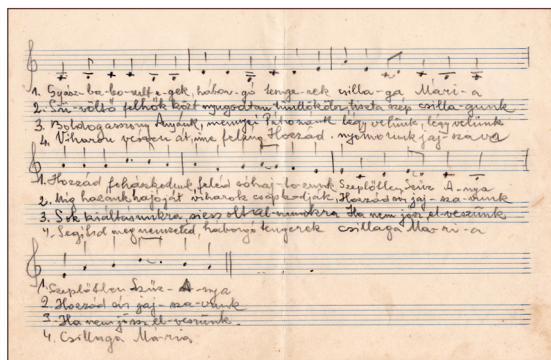 1. Gyász-ba-bo-rult e-gek, hábor-gó tenge-rek csilla-ga Mári-a
2. felhők közt nyugodtan tündöklő tiszta szép csilla-gunk
3. Boldogasszony Anyánk, mennyei Pátronánk légy velünk, légy velünk
4. Viharon vészen át, íme feléng Hozzád nyomorunk jaj-szava
1. Hozzád fohászkodunk feléd sóhaj-to-zunk Szeplőtlen Szűz A-nya
2. Míg hazánk hajóját viharok csapkodják, Hozzád sír jaj-sza-vunk
3. Sok kiáltásunkra, siess oltal-munkra Ha nem jösz el-veszünk
4. Segítsd meg nemzeted, háborgó tengerek csillaga Má-ri-a
1. Szeplőtlen Szűz-A-nya
2. Hozzád sír jaj-sza-vunk
3. Ha nem jössz el-veszünk.
4. Csillaga Mária